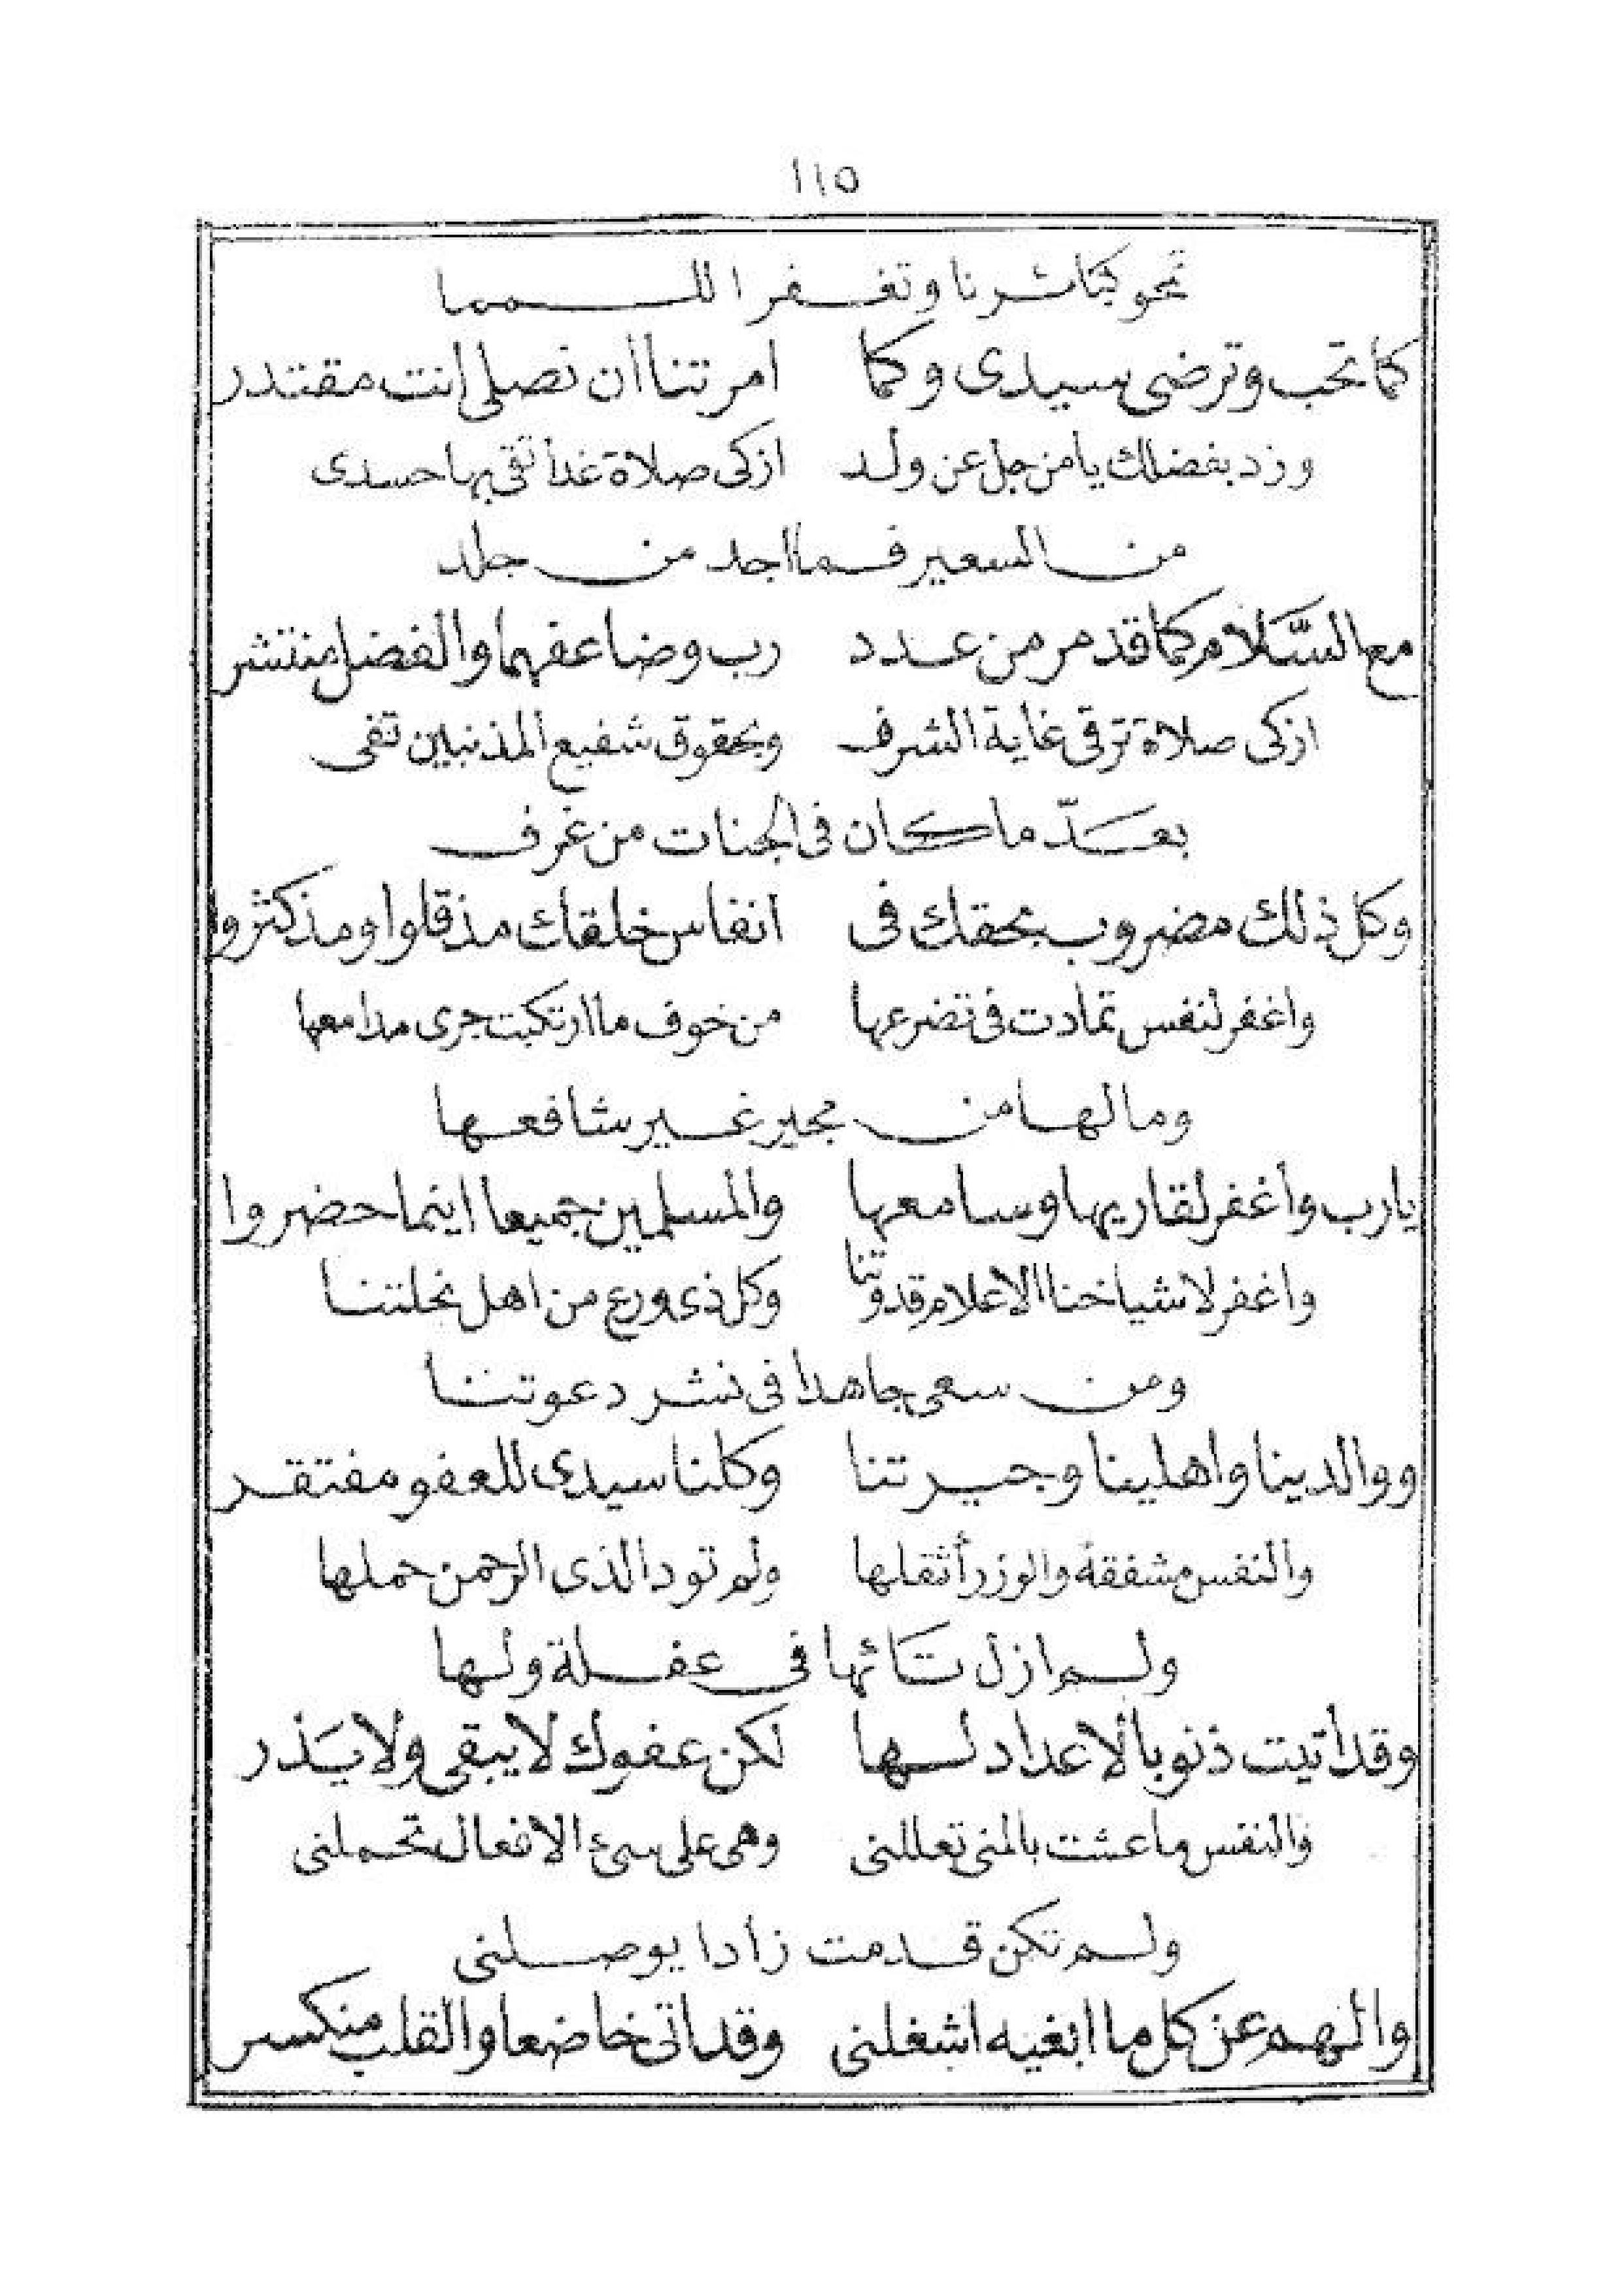 ١١٥
تمحو كبائرنا وتغفر اللمما
كما تحب وترضى سيدى وكما امرتنا أن نصلى انت مقتدر
وزد بفضلك يا من جل عن ولد ازكى صلاة غدا تقى بها جسدى
من السعير فما اجد من جلد
مع السّلام كما قد مر من عدد رب وضاعفهما والفضل منتشر
ازكى صلاة ترقى غاية الشرف وبحقوق شفيع المذنبين تفى
بعدّ ما كان فى الجنات من غرف
وكل ذلك مضروب بحقك فى انفاس خلقك مذ قلوا ومذ كثروا
واغفر لنفس تمادت فى تضرعها من خوف ما ارتكبت جرى مدامعها
وما لها من مجير غير شافعها
يارب وأغفر لقاريها وسامعها والمسلمين جميعا اينما حضروا
واغفر لاشياخنا الاعلام قدوتنا وكل ذى ورع من اهل نحلتنا
ومن سعى جاهدا فى نشر دعوتنا
ووالدينا واهلينا وجيرتنا وكلنا سيدى للعفو مفتقر
والنفس مشفقة والوزر أثقلها ولم تود الذى الرحمن حملها
ولم ازل تائها فى غفلة ولها
وقد أتيت ذنوبا لا عداد لها لكن عفوك لا يبقى ولا يَذر
والنفس ما عشت بالمنى تعللنى وهى على سئ الافعال تحملنى
ولم تكن قدمت زادا يوصلنى
والهم عن كل ما ابغيه اشغلنى وقد اتى خاضعا والقلب منكسر